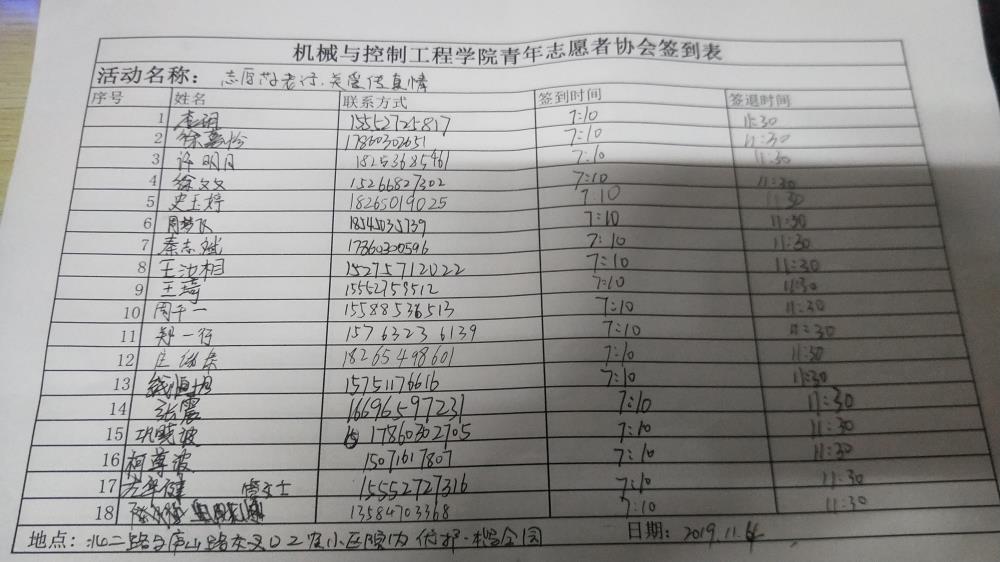 机械与控制工程学院青年志愿者协会签到表
活动名称：志愿 老行.关爱传真情
序号 姓名 联系方式 签到时间 签退时间
1 李 15552725817 7:10 11:30
2 徐嘉怜 17860302651 7:10 11:30
3 许明月 18253685461 7:10 11:30
4 徐文文 15266827302 7:10 11:30
5 史玉婷 18265019025 7:10 11:30
6 周梦 18545035739 7:10 11:30
7 秦志斌 17860300596 7:10 11:30
8 王汝相 15275712022 7:10 11:30
9 王琦 15552759512 7:10 11:30
10 周千一 15588536513 7:10 11:30
11 郑一行 15763236139 7:10 11:30
12 庄 18265498601 7:10 11:30
13 15751176616 7:10 11:30
14 张震 16696597231 7:10 11:30
15 巩晓波 17860302705 7:10 11:30
16 柯尊波 15071617807 7:10 11:30
17 15552727316 7:10 11:30
18 13584703368 7:10 11:30
地点： 二路与庐山路交叉口 小区院内 日期：2019.11.4